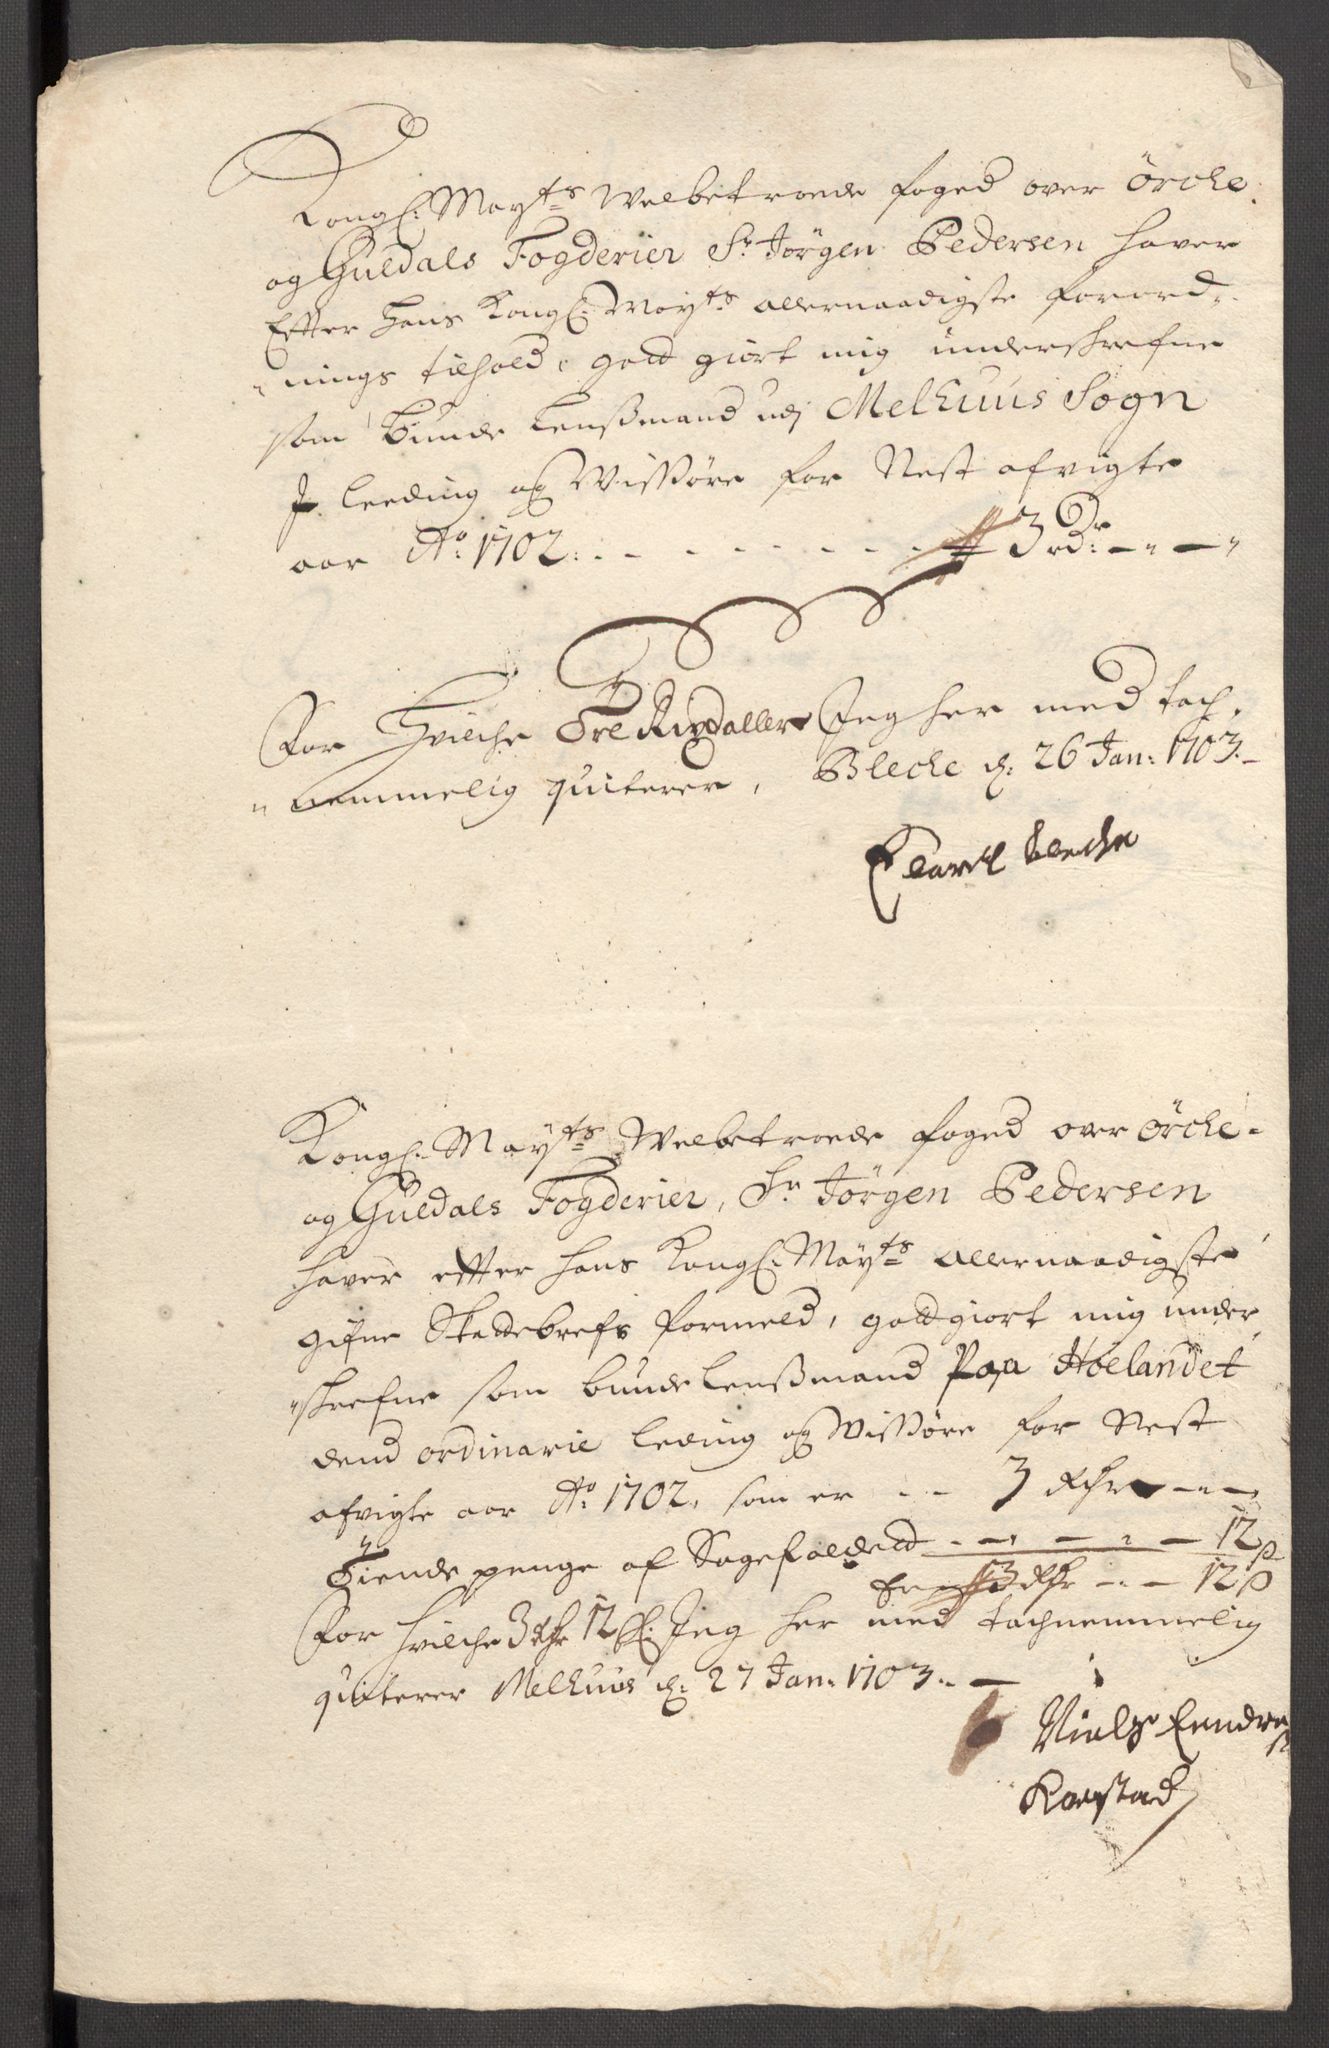 Kongl: Mayts Welbetroede foged over Örche
og Guldals Fogderier Sr Jörgen Pedersen haver
Efter Hans Kongl: Mayts allernaadigste forord-
nings tilhold, godt giort mig underskrefne
som bunde Lensßmand udj Melhuus Sogn
J leeding og Wissöre for Nest afvigte
aar Ao 1702: - - - - - - - 3 rdr: - " - "
For Hvilche Tre Rixdaller Jeg her med tach-
nemmelig quiterer, Bleche d: 26 Jan: 1703.-
bleche
Kongl: Mayts Welbetroede foged over Örche-
og Guldals Fogderier, Sr Jörgen Pedersen
haver efter hans Kongl: Mayts allernaadigste
gifne Skattebrefs formeld, godtgiort mig under
skrefne som bunde lensßmand Paa Höelandet
dend ordinarie leding og Wissöre for Nest
afvigte aar Ao 1702, som er - - 3 Rdr - - -
Tiende penge af Sagefaldet - - - - - 12 ß
Er 3 Rdr - - 12 ß
For hvilche 3 Rdr 12 ß: Jeg her med tachnemmelig
quiterer Melhuus d: 27 Jan: 1703. -
Niels